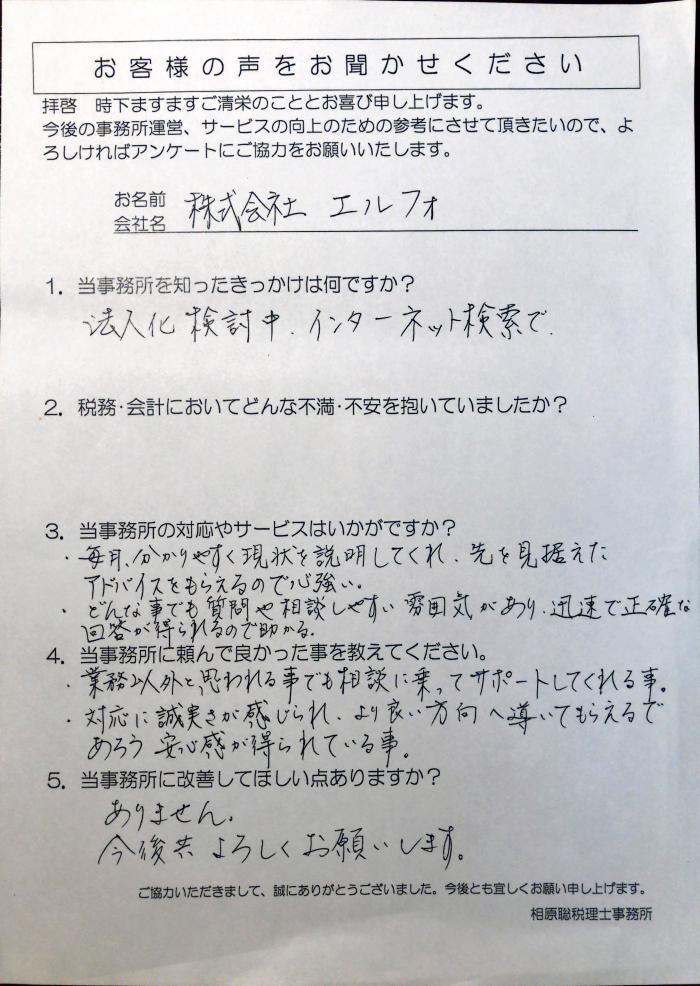 お客様の声をお聞かせください
拝啓　時下ますますご清栄のこととお喜び申し上げます。
今後の事務所運営、サービスの向上のための参考にさせて頂きたいので、よ
ろしければアンケートにご協力をお願いいたします。
お名前
会社名
株式会社 エルフォ
1. 当事務所を知ったきっかけは何ですか？
法人化検討中、インターネット検索で。
2. 税務・会計においてどんな不満・不安を抱いていましたか？
3. 当事務所の対応やサービスはいかがですか？
・毎月、分かりやすく現状を説明してくれ、先を見据えた
アドバイスをもらえるので心強い。
・どんな事でも質問や相談しやすい雰囲気があり、迅速で正確な
回答が得られるので助かる。
4. 当事務所に頼んで良かった事を教えてください。
・業務以外と思われる事でも相談に乗ってサポートしてくれる事。
・対応に誠実さが感じられ、より良い方向へ導いてもらえるで
あろう安心感が得られている事。
5. 当事務所に改善してほしい点ありますか？
ありません。
今後共よろしくお願いします。
ご協力いただきまして、誠にありがとうございました。今後とも宜しくお願い申し上げます。
相原聡税理士事務所